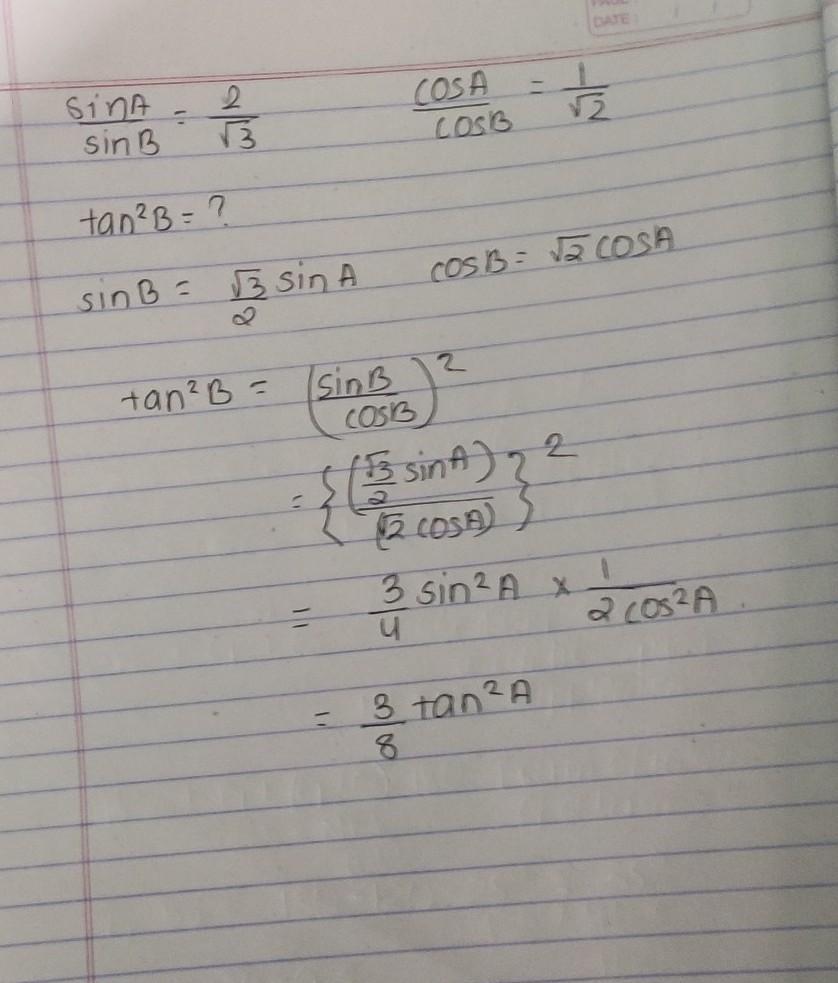 DATE:
sinA/sinB = 2/√3    cosA/cosB = 1/√2
tan²B = ?
sinB = √3/2 sinA    cosB = √2 cosA
tan²B = (sinB/cosB)²
= {(√3/2 sinA)/(√2 cosA)}²
= 3/4 sin²A × 1/2cos²A.
= 3/8 tan²A